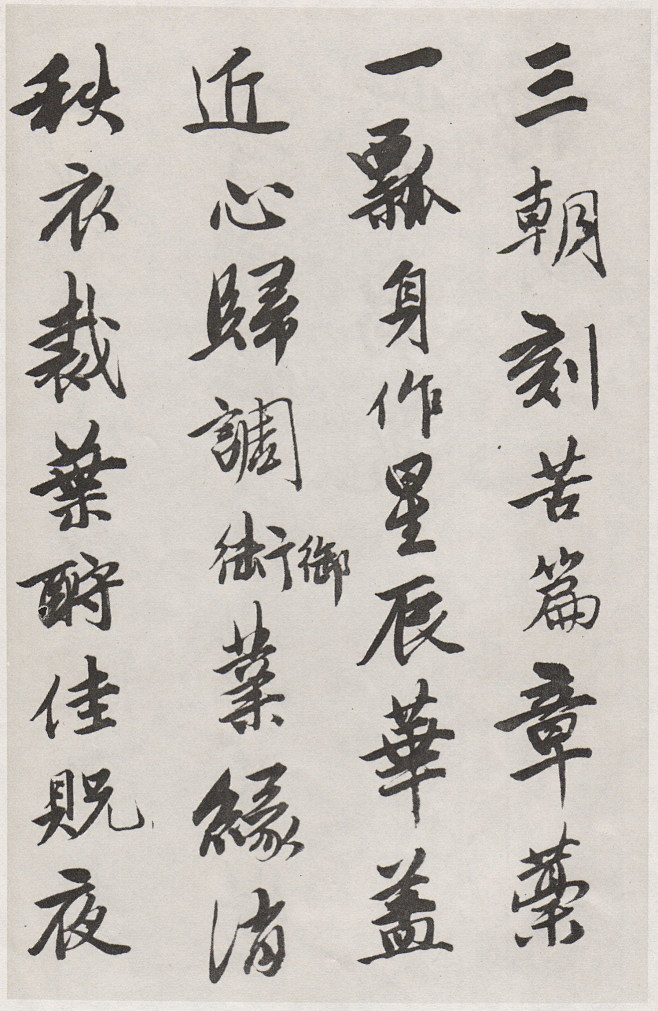 三朝刻苦篇章藁
一瓢身作星辰華蓋
近心歸調御業緣消
秋衣裁葉酹佳貺夜